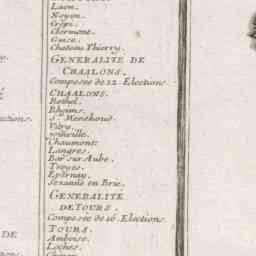 Laon.
Noyon.
Crépi.
Clermont.
Guise.
Chateau Thierry.
GENERALITE DE
CHAALONS.
Composée de 12 Elections.
CHAALONS.
Rethel.
Rheims.
Ste Menehoud.
Vitry.
Joinville.
Chaumont.
Langres.
Bar sur Aube.
Troyes.
Epernay.
Sezanne en Brie.
GENERALITE
DE TOURS.
Composée de 16 Elections.
TOURS.
Amboise.
Loches.
DE